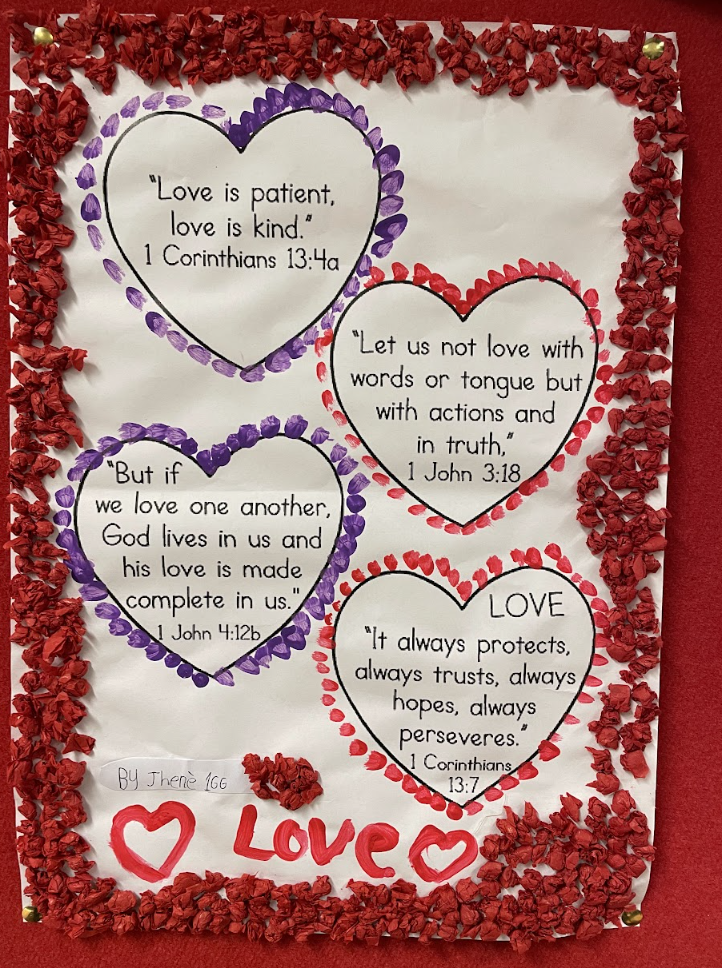 "Love is patient,
love is kind."
1 Corinthians 13:4a
"Let us not love with
words or tongue but
with actions and
in truth,"
1 John 3:18
"But if
we love one another,
God lives in us and
his love is made
complete in us."
1 John 4:12b
LOVE
"It always protects,
always trusts, always
hopes, always
perseveres."
1 Corinthians
13:7
By Jhenè 1GG
Love